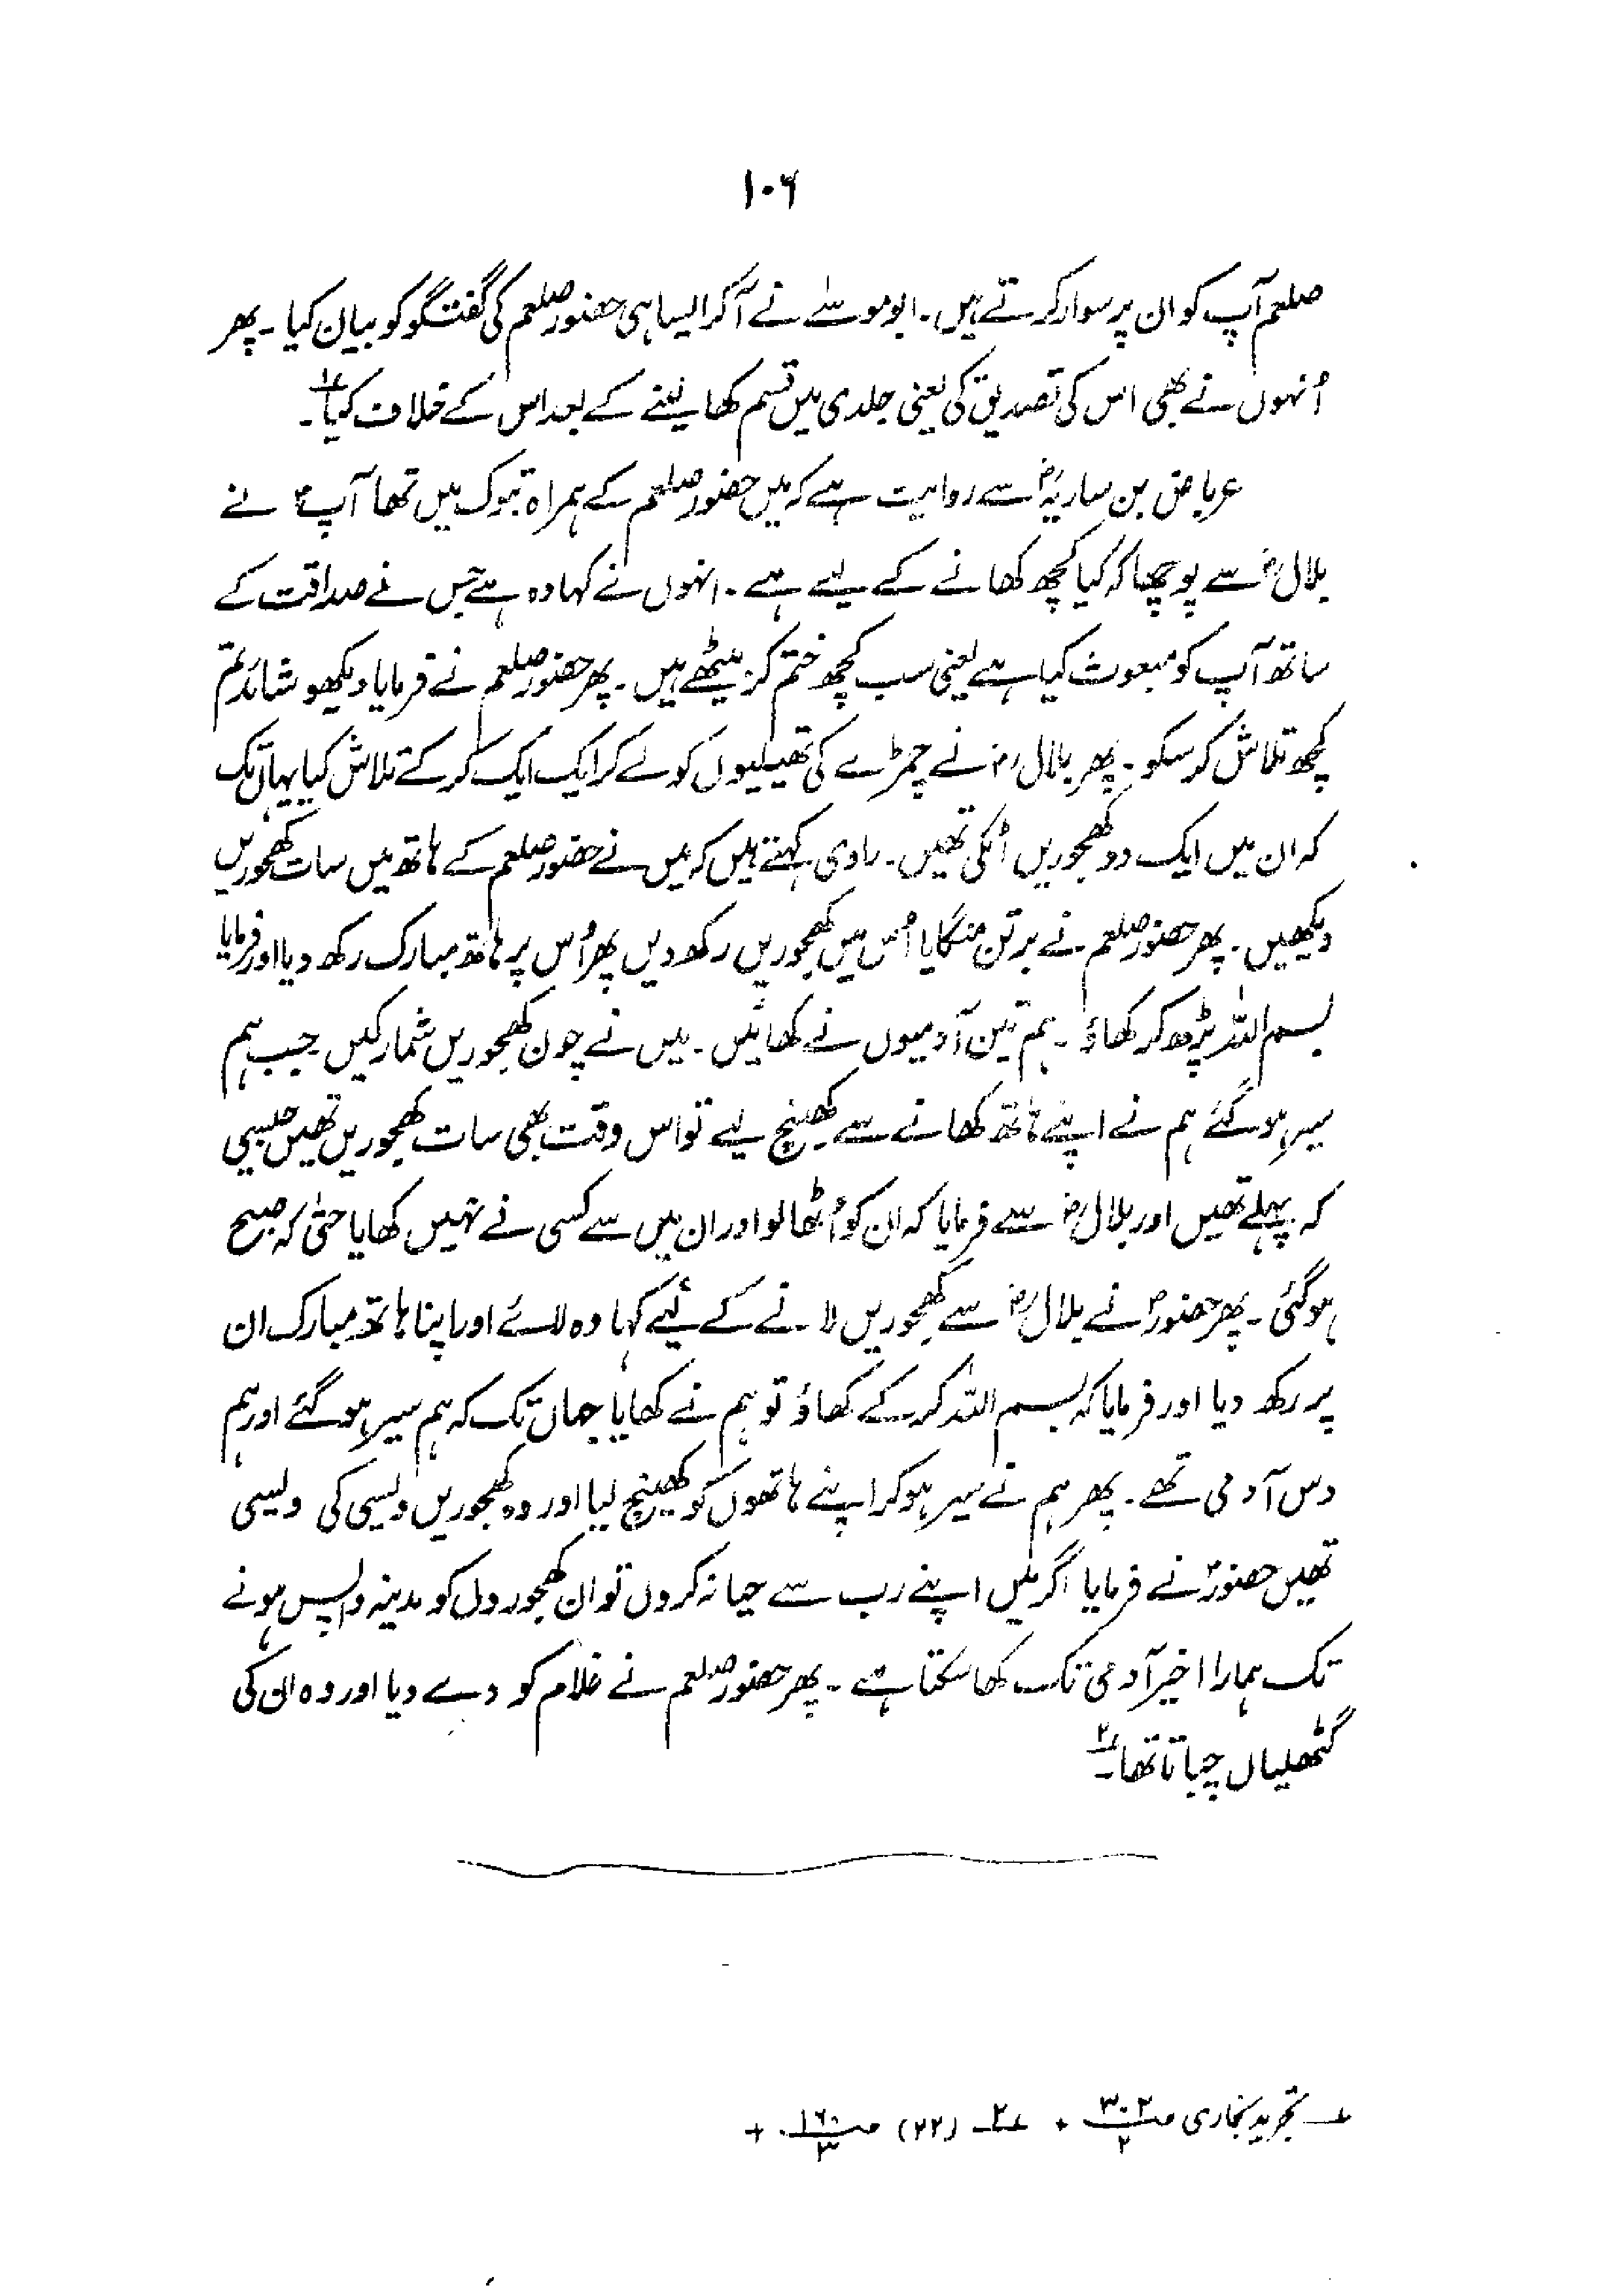 ۱۰۶
صلعم آپ کو ان پر سوار کرتے ہیں۔ ابو موسےٰ نے آکر ایسا ہی حضور صلعم کی گفتگو کو بیان کیا۔ پھر
اُنہوں نے بھی اس کی تصدیق کی یعنی جلدی میں قسم کھا لینے کے بعد اس کے خلاف کیا؁۱۔
عرباض بن ساریہؓ سے روایت ہے کہ میں حضور صلعم کے ہمراہ تبوک میں تھا آپؐ نے
بلالؓ سے پوچھا کہ کیا کچھ کھانے کے لیے ہے۔ انہوں نے کہا وہ ہے جس نے صداقت کے
ساتھ آپ کو مبعوث کیا ہے یعنی سب کچھ ختم کر بیٹھے ہیں۔ پھر حضور صلعم نے فرمایا دیکھو شائد تم
کچھ تلاش کر سکو۔ پھر بلالؓ نے چمڑے کی تھیلیوں کو لے کر ایک ایک کر کے تلاش کیا یہاں تک
کہ ان میں ایک دو کھجوریں اٹکی تھیں۔ راوی کہتے ہیں کہ میں نے حضور صلعم کے ہاتھ میں سات کھجوریں
دیکھیں۔ پھر حضور صلعم نے برتن منگایا اُس میں کھجوریں رکھ دیں پھر اُس پر ہاتھ مبارک رکھ دیا اور فرمایا
بسم اللہ پڑھ کر کھاؤ۔ ہم تین آدمیوں نے کھائیں۔ میں نے چون کھجوریں شمار کیں جب ہم
سیر ہوگئے ہم نے اپنے ہاتھ کھانے سے کھینچ لیے تو اس وقت بھی سات کھجوریں تھیں جیسی
کہ پہلے تھیں اور بلالؓ سے فرمایا کہ ان کو اُٹھا لو اور ان میں سے کسی نے نہیں کھایا حتیٰ کہ صبح
ہوگئی۔ پھر حضورؐ نے بلالؓ سے کھجوریں لانے کے لیے کہا وہ لائے اور اپنا ہاتھ مبارک ان
پر رکھ دیا اور فرمایا کہ بسم اللہ کر کے کھاؤ تو ہم نے کھایا جہاں تک کہ ہم سیر ہوگئے اور ہم
دس آدمی تھے۔ پھر ہم نے سیر ہو کر اپنے ہاتھوں کو کھینچ لیا اور وہ کھجوریں ویسی کی ویسی
تھیں حضورؐ نے فرمایا اگر میں اپنے رب سے حیا نہ کروں تو ان کھجوروں کو مدینہ واپس ہونے
تک ہمارا اخیر آدمی تک کھا سکتا ہے۔ پھر حضور صلعم نے غلام کو دے دیا اور وہ ان کی
گٹھلیاں چباتا تھا؁۲۔
؁ تجرید بخاری ص ۳۰۲/۲ + ؁۲ (۲۲) ص ۱۶۰/۳ +